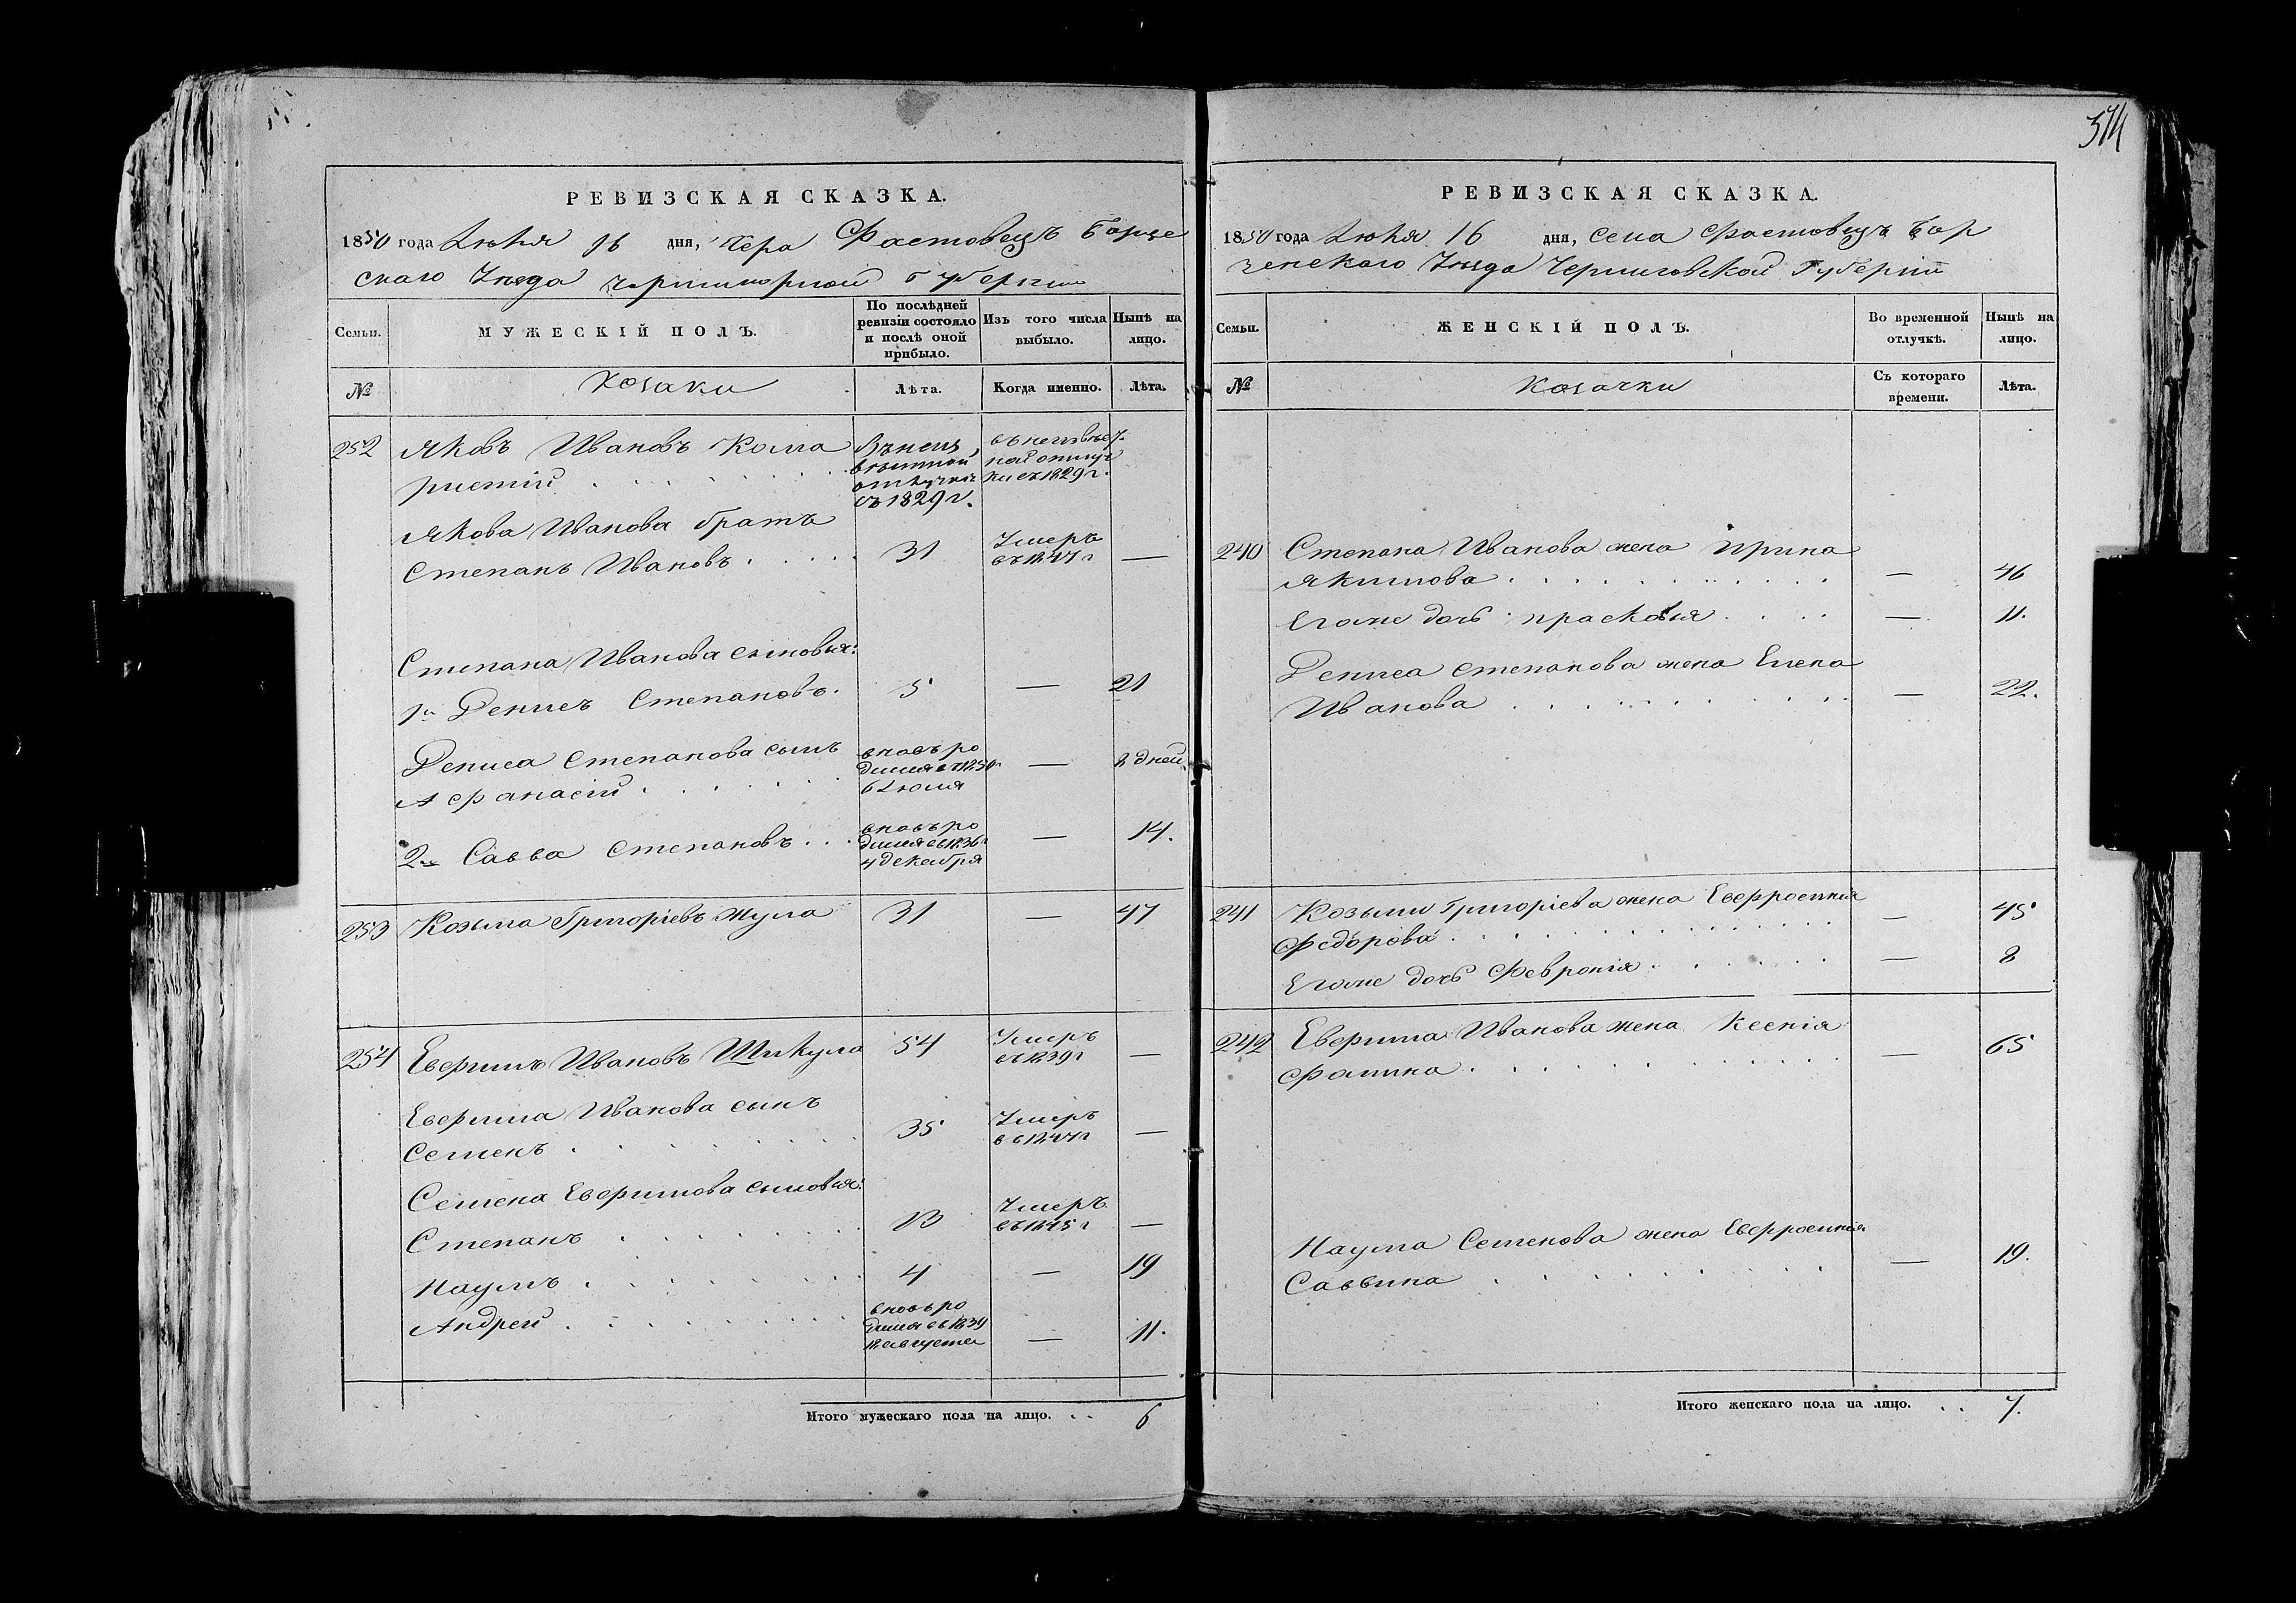 РЕВИЗСКАЯ СКАЗКА.
1850 года Июня 16 дня, Фастовецъ Борзе
скаго Уезда губернии
Семьи.
МУЖЕСКІЙ ПОЛЪ.
По послѣдней
ревизіи состояло
и послѣ оной
прибыло.
Изъ того числа
выбыло.
Нынѣ на
лицо.
№
Козаки
Лѣта.
Когда именно.
Лѣта.
252 Яковъ Ивановъ
съ 1829 г.
съ 1829 г.
Якова Иванова братъ
Степанъ Ивановъ 31 Умеръ —
Степана Иванова сыновья:
1й Денисъ Степановъ. 5 — 21
Дениса Степанова сынъ
Афанасій
вновь ро
дился
— дней
2й Савва Степановъ
вновь ро
дился въ 1836 г
4 декабря
— 14.
253 Козьма Григоріевъ Жула 31 — 47
254 Евфимъ Ивановъ Шикула 54 Умеръ
въ 1839 г —
Евфима Иванова сынъ
Семенъ 35 Умеръ —
Семена Евфимова сыновья:
Степанъ Умеръ
въ 1845 г —
Наумъ 4 — 19
Андрей
вновь ро
дился въ 1839
августа
— 11.
Итого мужескаго пола на лицо. 6
574
РЕВИЗСКАЯ СКАЗКА.
1850 года Июня 16 дня, села Фастовецъ Бор
зенскаго Уезда Черниговской Губерніи
Семьи.
ЖЕНСКІЙ ПОЛЪ.
Во временной
отлучкѣ.
Нынѣ на
лицо.
№
Козачки
Съ котораго
времени.
Лѣта.
240 Степана Иванова жена Ирина
Якимова — 46
Егоже дочь Прасковья — 11.
Дениса Степанова жена Елена
Иванова — 22.
241 Козьмы Григоріева жена Евфросинія
Федорова — 45
Егоже дочь Февронія — 8
242 Евфима Иванова жена Ксенія
Фомина — 65
Наума Семенова жена Евфросинія
Саввина — 19.
Итого женскаго пола на лицо. 7.